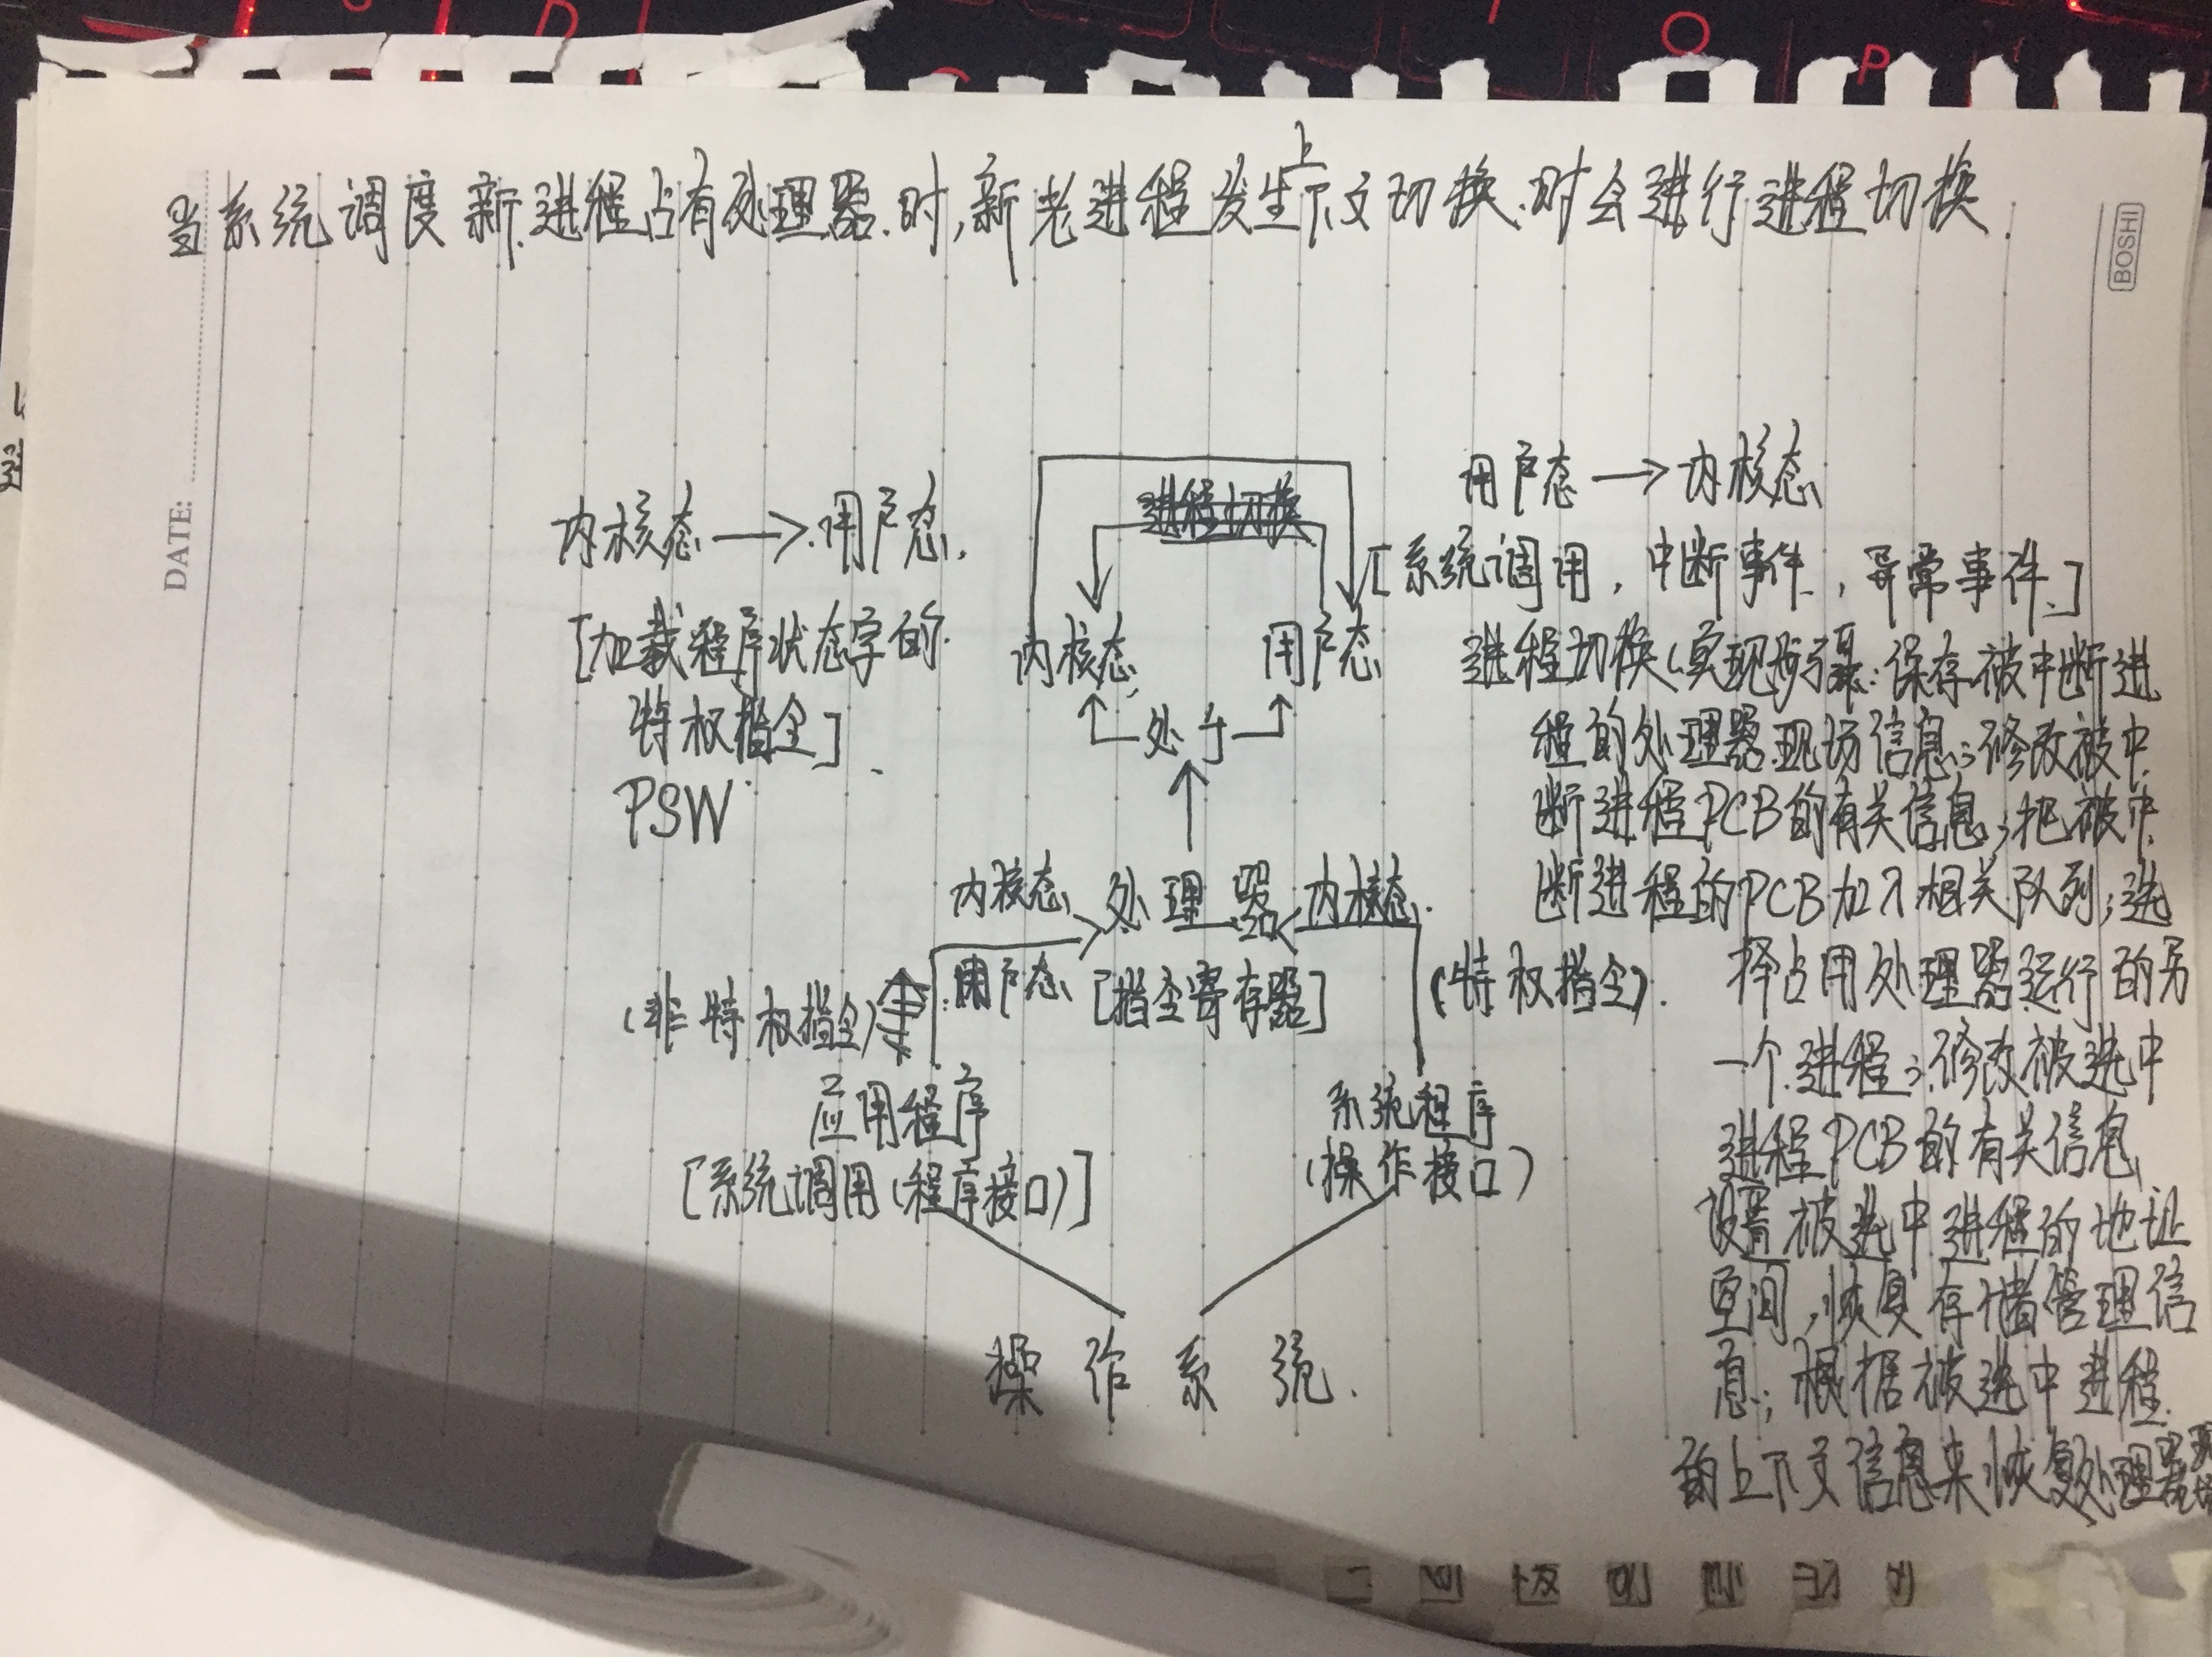 当系统调度新进程占有处理器时,新老进程发生上下文切换时会进行进程切换.
BOSHI
DATE:
内核态→用户态.
[加载程序状态字的
特权指令]
PSW
进程切换
内核态
用户态
处于
用户态→内核态
[系统调用,中断事件,异常事件]
进程切换(实现步骤:保存被中断进
程的处理器现场信息;修改被中
断进程PCB的有关信息;把被中
断进程的PCB加入相关队列;选
择占用处理器运行的另
一个进程;修改被选中
进程PCB的有关信息
设置被选中进程的地址
空间,恢复存储管理信
息;根据被选中进程
的上下文信息来恢复处理器现场
内核态
处理器
内核态.
(非特权指令)
用户态
[指令寄存器]
(特权指令).
应用程序
[系统调用(程序接口)]
系统程序
(操作接口)
操作系统.
O
P
D